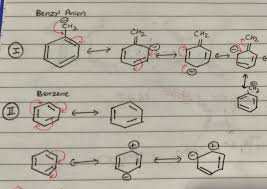 Benzyl Anion
I
⊖
CH₂
CH₂
⊖
CH₂
⊖
CH₂
⊖
⊖
CH₂
Benzene
II
⊕
⊖
⊖
⊕